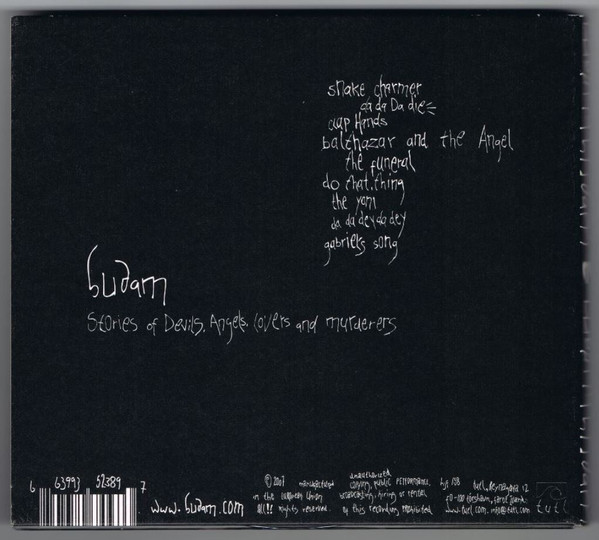 snake charmer
da da Da die
clap Hands
balthazar and the Angel
the funeral
do that thing
the yam
da da dey da dey
gabriels song
budam
Stories of Devils, Angels, lovers and murderers
6 63993 52389 7
www.budam.com
© 2007 manufactured
in the European Union
all!! rights reserved.
unauthorized
copying, public performance,
broadcasting, hiring or rental
of this recording prohibited
tutl, Reynagøta 12
FO-100 tórshavn, faroe islands
www.tutl.com
tutl